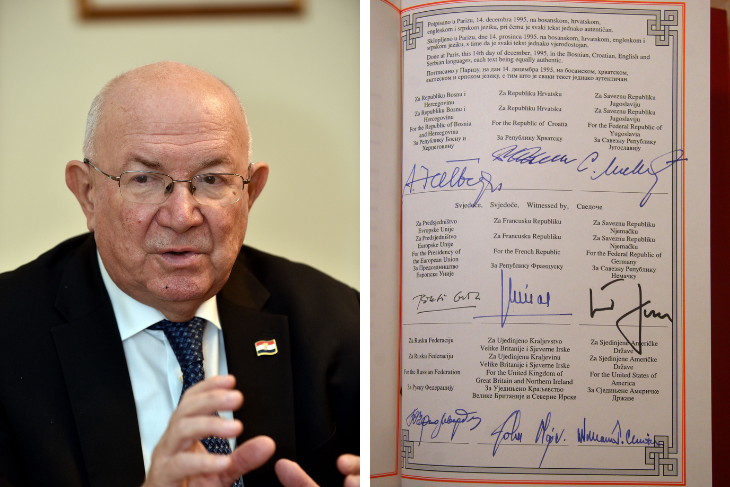 Potpisano u Parizu, 14. decembra 1995, na bosanskom, hrvatskom,
engleskom i srpskom jeziku, pri čemu je svaki tekst jednako autentičan.
Sklopljeno u Parizu, dne 14. prosinca 1995, na bosanskom, hrvatskom, engleskom i
srpskom jeziku, s time da je svaki tekst jednako vjerodostojan.
Done at Paris, this 14th day of december, 1995, in the Bosnian, Croatian, English and
Serbian languages, each text being equally authentic.
Потписано у Паризу, на дан 14. децембра 1995, на босанском, хрватском,
енглеском и српском језику, с тим што је сваки текст једнако аутентичан
Za Republiku Bosnu i
Hercegovinu
Za Republiku Bosnu i
Hercegovinu
For the Republic of Bosnia
and Herzegovina
За Републику Босну и
Херцеговину
Za Republiku Hrvatsku
Za Republiku Hrvatsku
For the Republic of Croatia
За Републику Хрватску
Za Saveznu Republiku
Jugoslaviju
Za Saveznu Republiku
Jugoslaviju
For the Federal Republic of
Yugoslavia
За Савезну Републику
Југославију
Svjedoče, Svjedoče, Witnessed by, Сведоче
Za Predsjedništvo
Evropske Unije
Za Predsjedništvo
Europske Unije
For the Presidency of
the European Union
За Председништво
Европске Уније
Za Francusku Republiku
Za Francusku Republiku
For the French Republic
За Републику Француску
Za Saveznu Republiku
Njemačku
Za Saveznu Republiku
Njemačku
For the Federal Republic of
Germany
За Савезну Републику
Немачку
Za Ruska Federacija
Za Rusku Federaciju
For the Russian Federation
За Руску Федерацију
Za Ujedinjeno Kraljevstvo
Velike Britanije i Sjeverne Irske
Za Ujedinjenu Kraljevinu
Velike Britanije i Sjeverne Irske
For the United Kingdom of
Great Britain and Northern Ireland
За Уједињено Краљевство
Велике Британије и Северне Ирске
Za Sjedinjene Američke
Države
Za Sjedinjene Američke
Države
For the United States of
America
За Сједињене Америчке
Државе
John